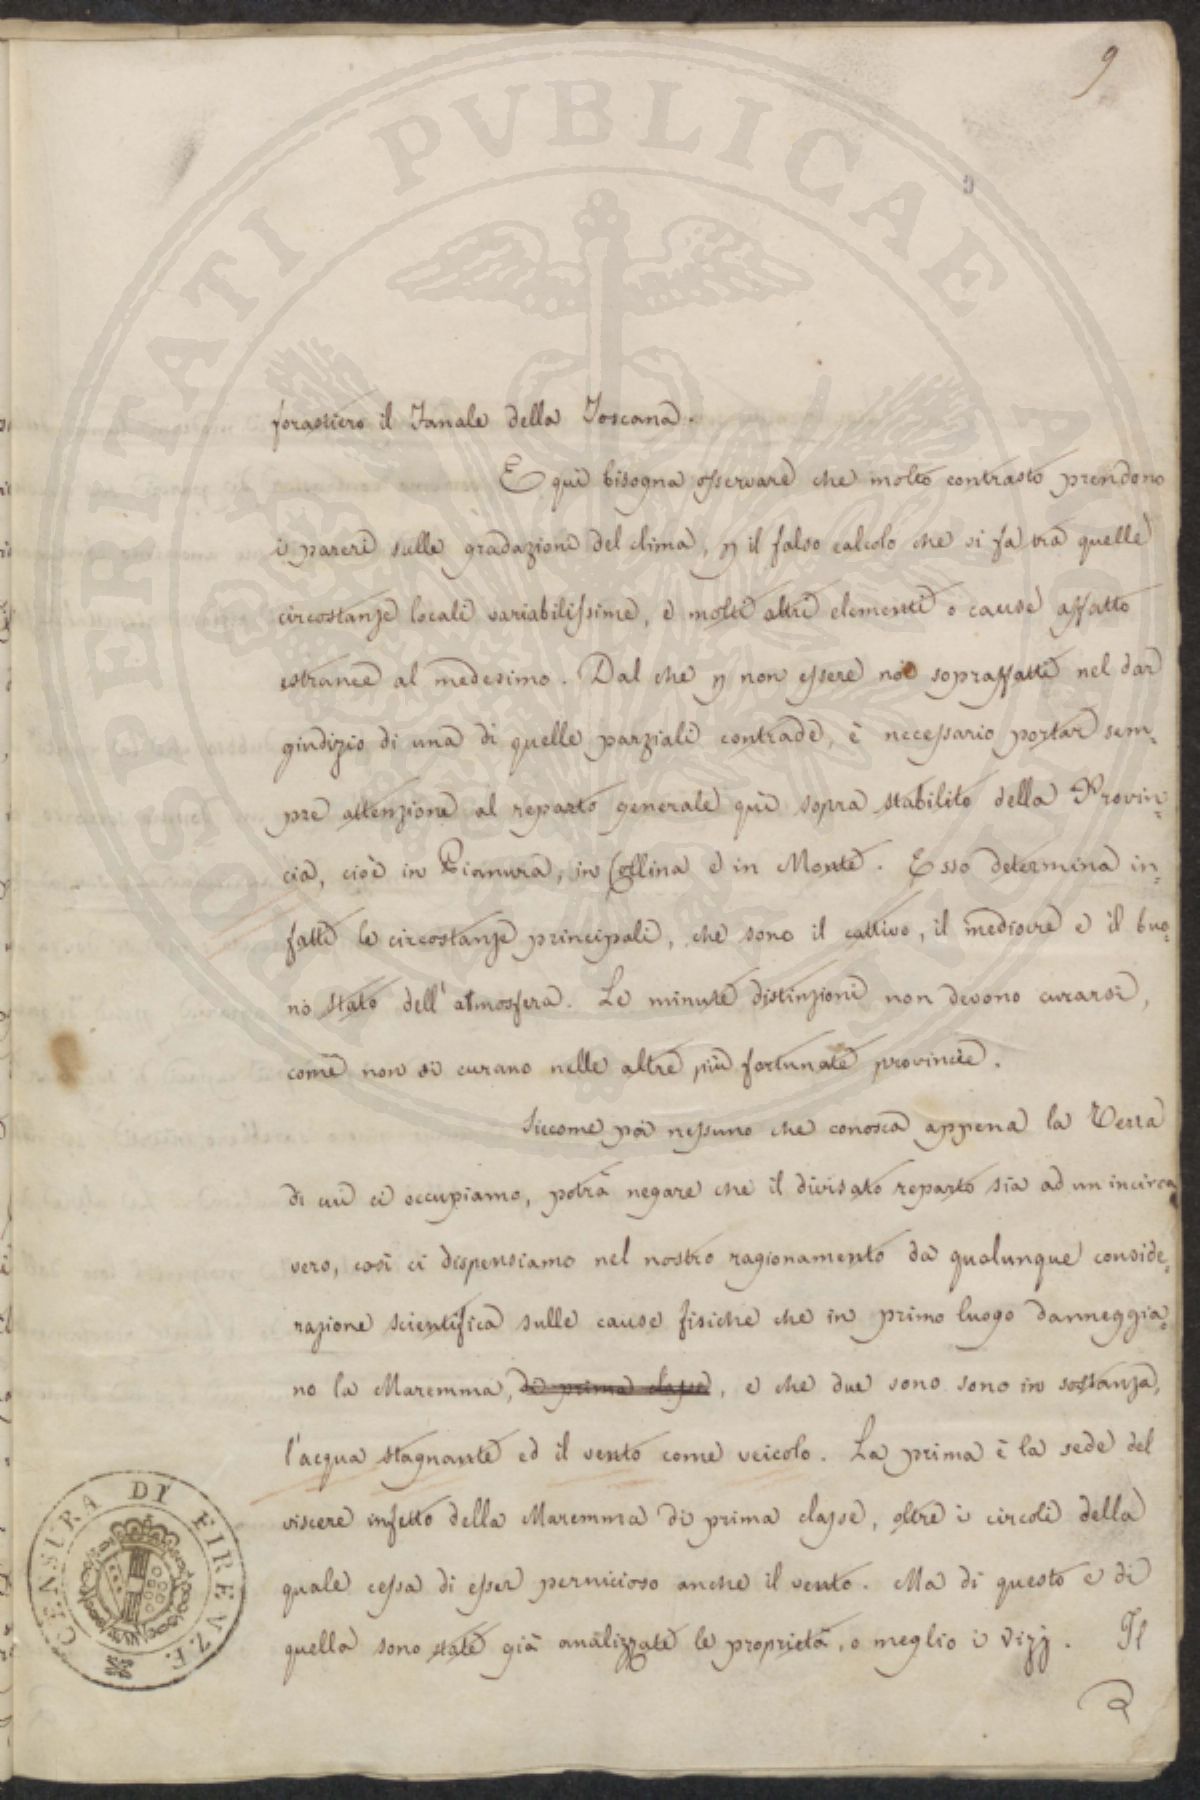 9
9
forastiero il Fanale della Toscana.
E quì bisogna osservare che molto contrasto prendono
i pareri sulle gradazioni del clima, p il falso calcolo che si fa trà quelle
circostanze locali variabilissime, e molti altri elementi o cause affatto
estranee al medesimo. Dal che p non essere noi sopraffatti nel dar
giudizio di una di quelle parziali contrade, è necessario portar sem=
pre attenzione al reparto generale quì sopra stabilito della Provin=
cia, cioè in Pianura, in Collina e in Monte. Esso determina in=
fatti le circostanze principali, che sono il cattivo, il mediocre e il buo=
no stato dell'atmosfera. Le minute distinzioni non devono curarsi,
come non si curano nelle altre più fortunate provincie.
Siccome poi nessuno che conosca appena la Terra
di cui ci occupiamo, potrà negare che il divisato reparto sia ad un incirca
vero, così ci dispensiamo nel nostro ragionamento da qualunque conside=
razione scientifica sulle cause fisiche che in primo luogo danneggia=
no la Maremma, di prima classe, e che due sono sono in sostanza,
l'acqua stagnante ed il vento come veicolo. La prima è la sede del
viscere infetto della Maremma di prima classe, oltre i circoli della
quale cessa di esser pernicioso anche il vento. Ma di questo e di
quella sono state già analizzate le proprietà, o meglio i vizj. Il
CENSURA DI FIRENZE
PROSPERITATI PVBLICAE